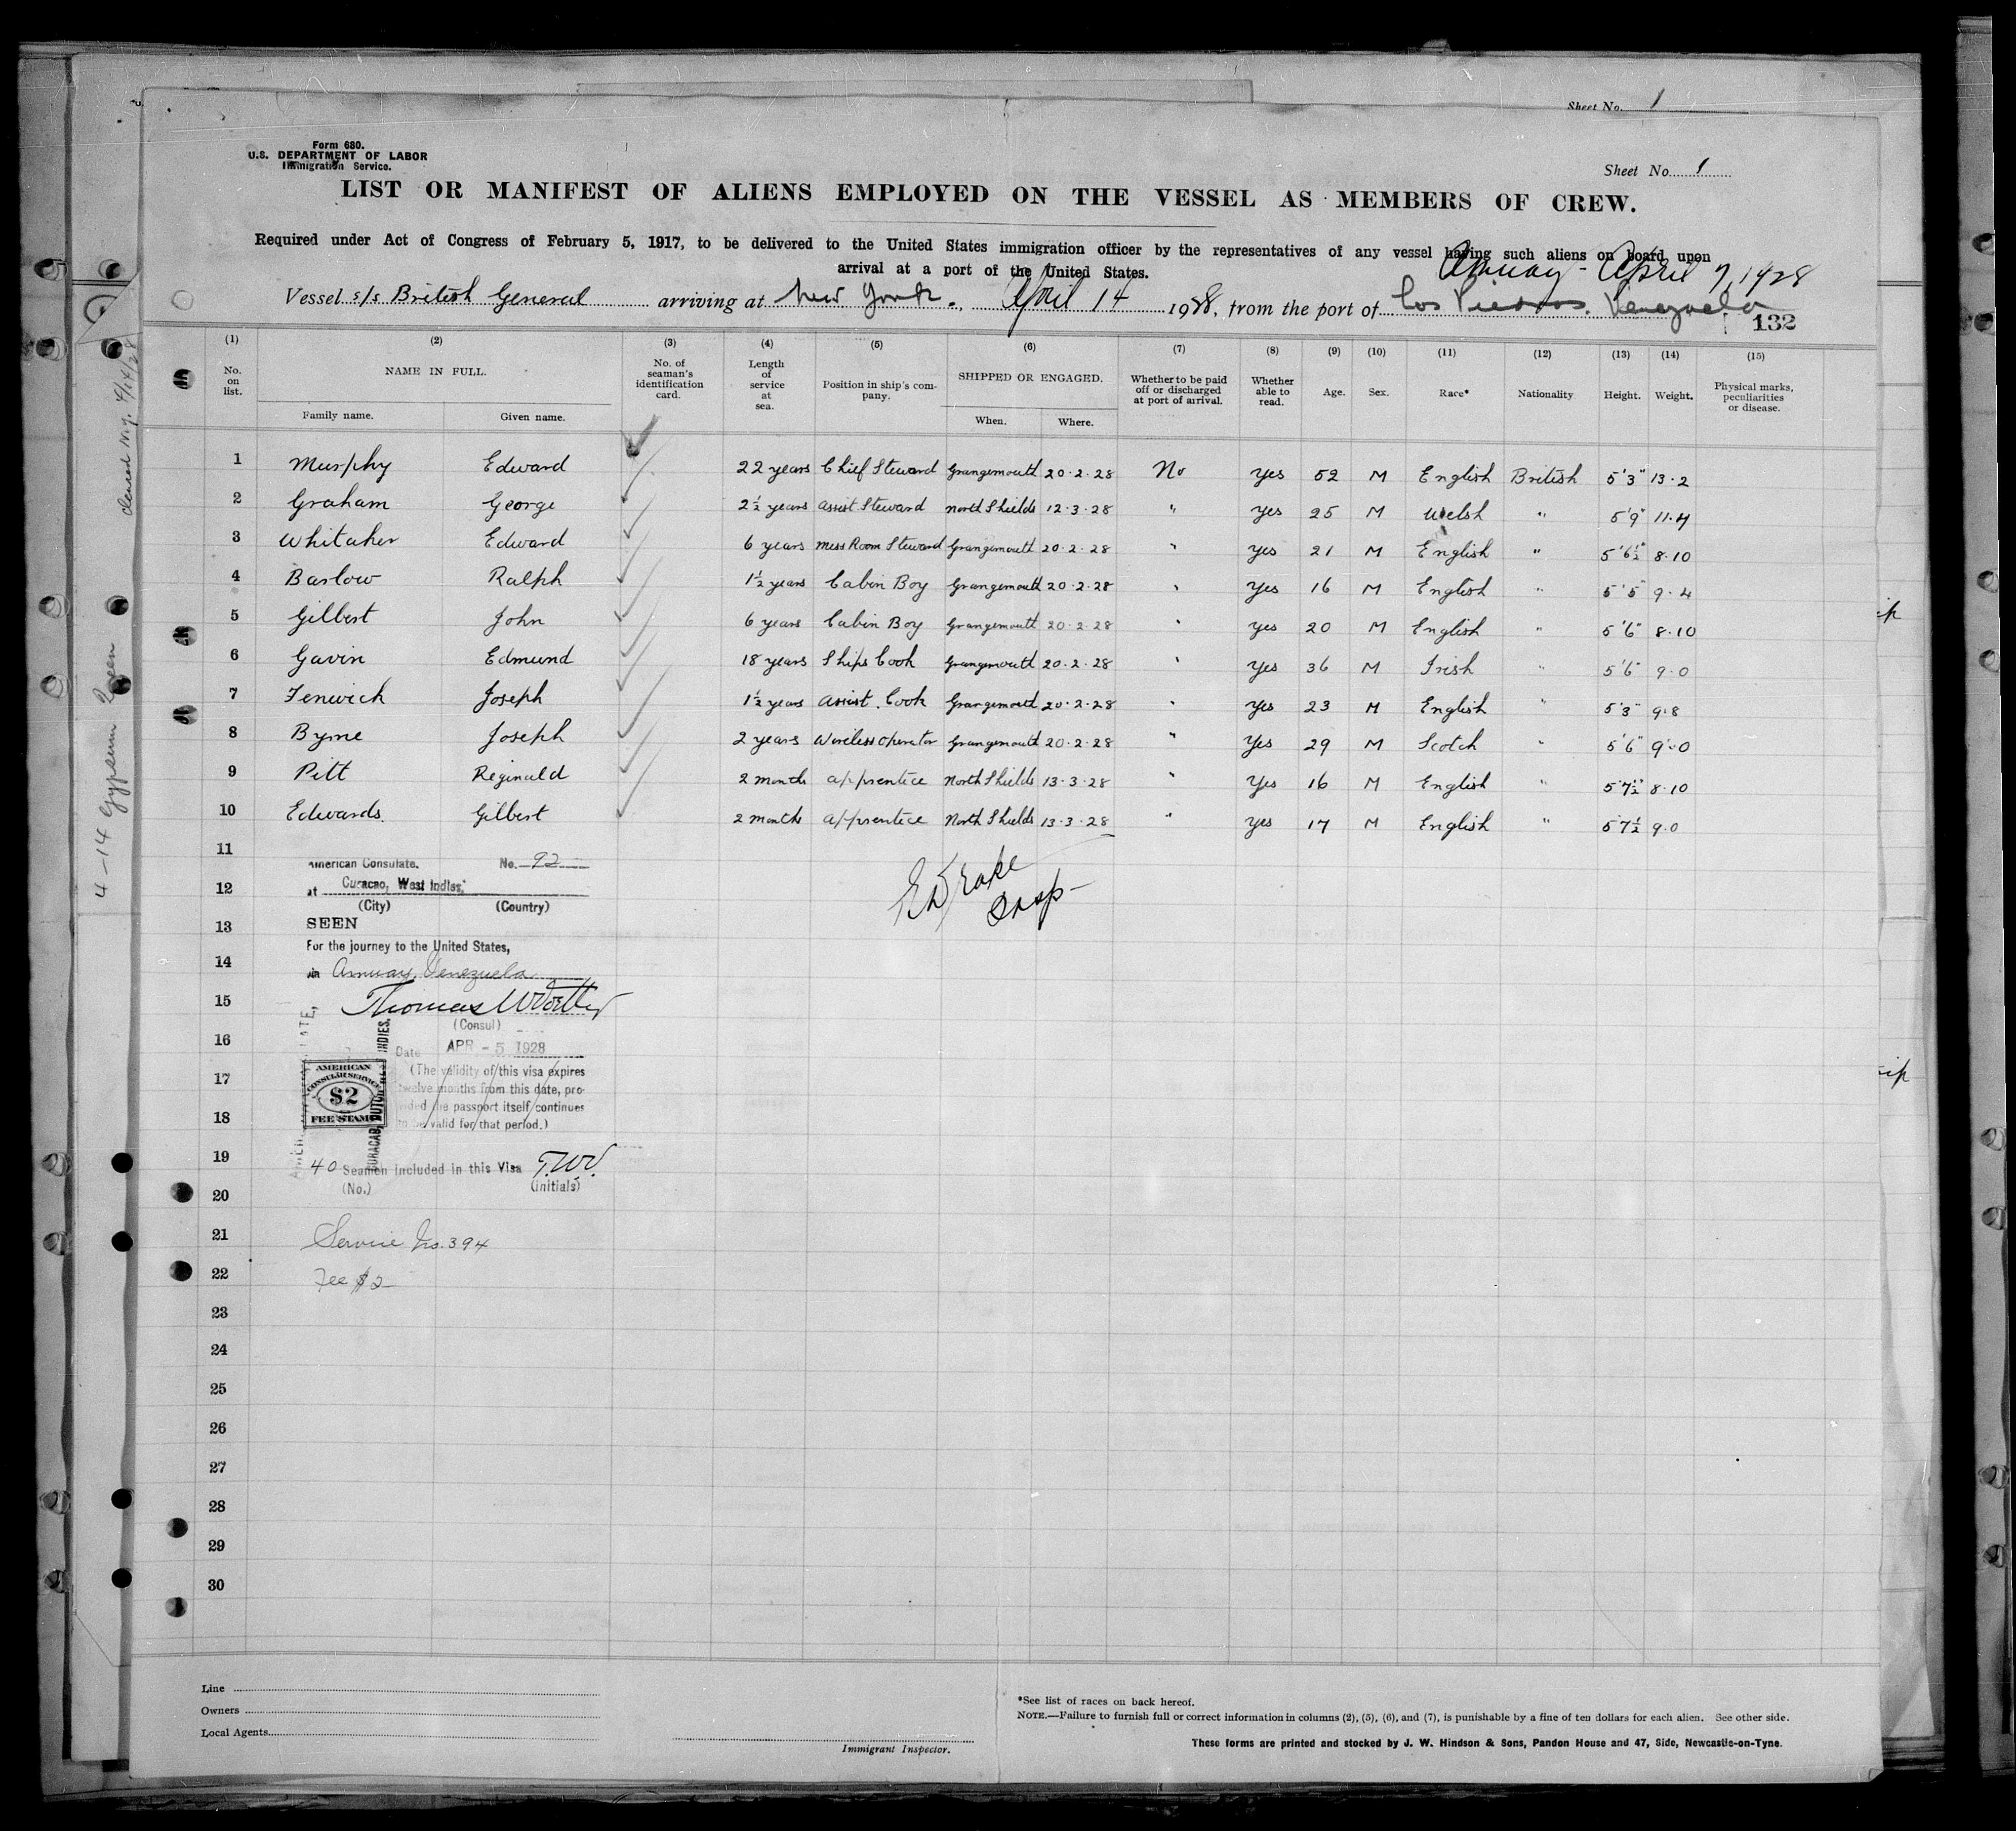 Sheet No. 1
Form 680.
U.S. DEPARTMENT OF LABOR
Immigration Service.
Sheet No. 1
LIST OR MANIFEST OF ALIENS EMPLOYED ON THE VESSEL AS MEMBERS OF CREW.
Required under Act of Congress of February 5, 1917, to be delivered to the United States immigration officer by the representatives of any vessel having such aliens on board upon
arrival at a port of the United States.
Amuay - April 7, 1928
Vessel s/s British General arriving at New York., April 14 1928, from the port of Los Piedras. Venezuela
132
(1) (2) (3) (4) (5) (6) (7) (8) (9) (10) (11) (12) (13) (14) (15)
No. on list. NAME IN FULL. Family name. Given name. No. of seaman's identification card. Length of service at sea. Position in ship's company. SHIPPED OR ENGAGED. When. Where. Whether to be paid off or discharged at port of arrival. Whether able to read. Age. Sex. Race* Nationality Height. Weight. Physical marks, peculiarities or disease.
1 Murphy Edward 22 years Chief Steward Grangemouth 20·2·28 No Yes 52 M English British 5'3" 13·2
2 Graham George 2½ years Assist Steward North Shields 12·3·28 " Yes 25 M Welsh " 5'9" 11·4
3 Whitaker Edward 6 years Mess Room Steward Grangemouth 20·2·28 " Yes 21 M English " 5'6½" 8·10
4 Barlow Ralph 1½ years Cabin Boy Grangemouth 20·2·28 " Yes 16 M English " 5'5" 9·4
5 Gilbert John 6 years Cabin Boy Grangemouth 20·2·28 " Yes 20 M English " 5'6" 8·10
6 Gavin Edmund 18 years Ships Cook Grangemouth 20·2·28 " Yes 36 M Irish " 5'6" 9·0
7 Fenwick Joseph 1½ years Assist. Cook Grangemouth 20·2·28 " Yes 23 M English " 5'3" 9·8
8 Byrne Joseph 2 years Wireless Operator Grangemouth 20·2·28 " Yes 29 M Scotch " 5'6" 9·0
9 Pitt Reginald 2 months apprentice North Shields 13·3·28 " Yes 16 M English " 5'7½" 8·10
10 Edwards. Gilbert 2 months apprentice North Shields 13·3·28 " Yes 17 M English " 5'7½ 9·0
11
American Consulate. No. 92
12
at Curacao, West Indies.
(City) (Country)
13
SEEN
For the journey to the United States,
14
in Amuay, Venezuela
15
(Consul)
16
Date APR - 5 1928
17
(The validity of this visa expires
twelve months from this date, pro-
vided the passport itself continues
18
to be valid for that period.)
AMERICAN
CONSULAR SERVICE
$2
FEE STAMP
19
40 Seamen included in this Visa T.W.V.
(No.) (initials)
20
21
Service No. 394
22
Fee $2
23
24
25
26
27
28
29
30
Line
Owners
Local Agents
Immigrant Inspector.
*See list of races on back hereof.
NOTE.—Failure to furnish full or correct information in columns (2), (5), (6), and (7), is punishable by a fine of ten dollars for each alien. See other side.
These forms are printed and stocked by J. W. Hindson & Sons, Pandon House and 47, Side, Newcastle-on-Tyne.
4-14 Gypsum Queen
cleared N.Y. 4/14/28